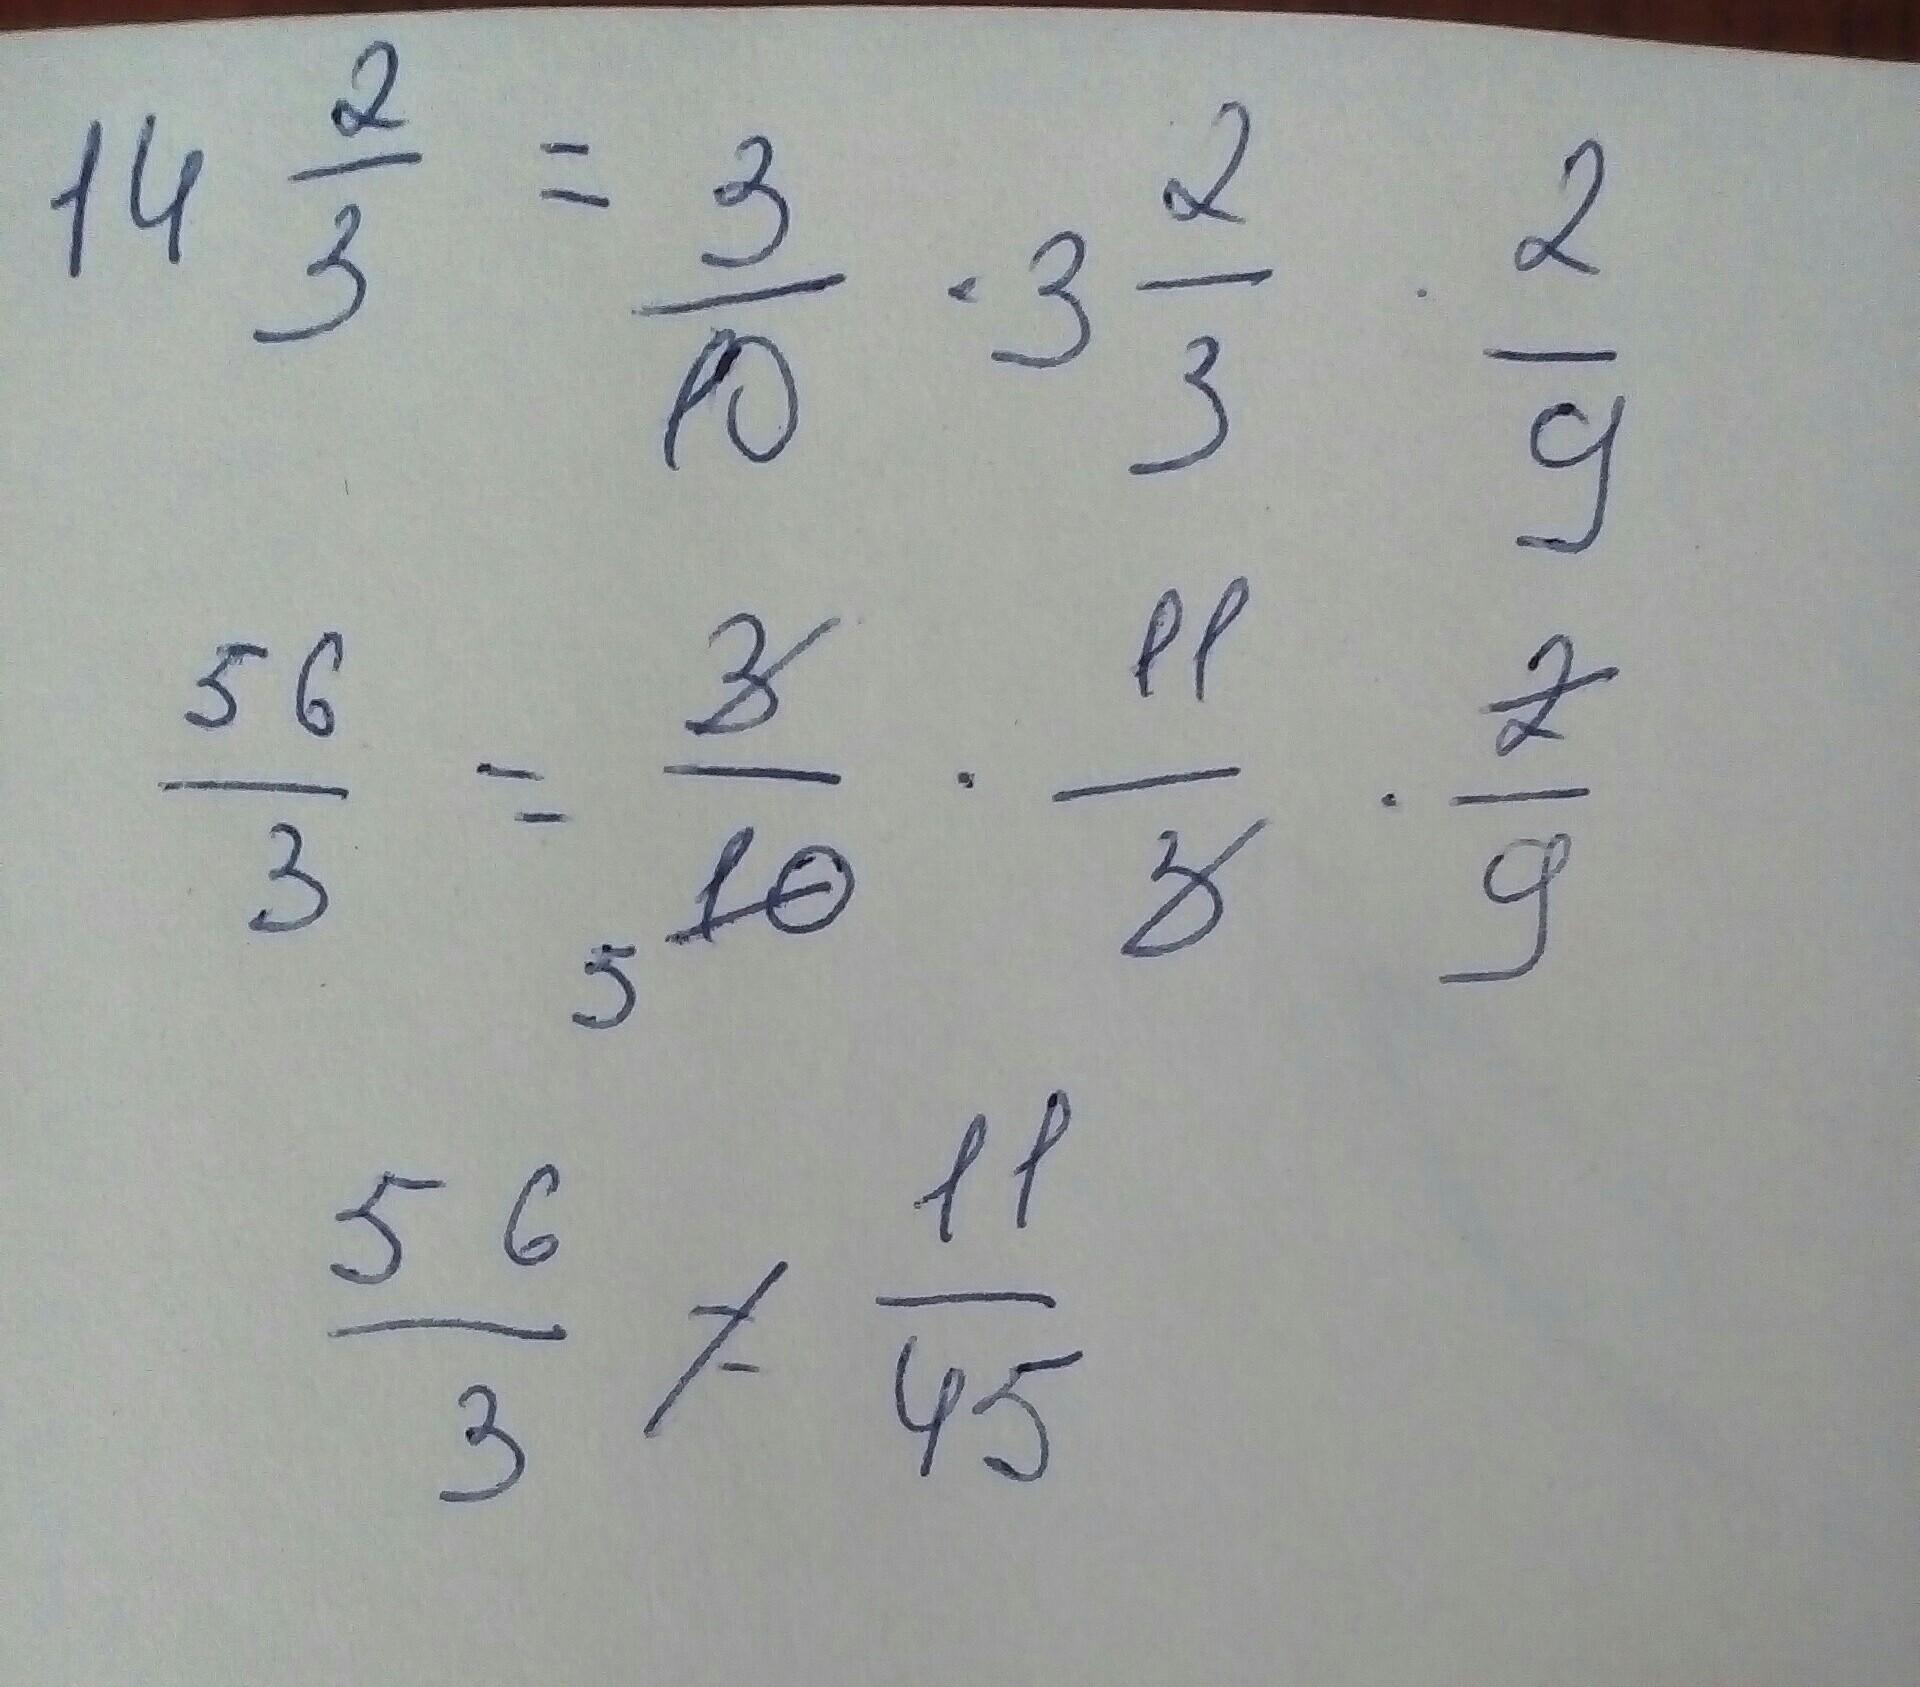 14 2/3 = 3/10 · 3 2/3 · 2/9
56/3 = 3/10 · 11/3 · 2/9
5
56/3 ≠ 11/45